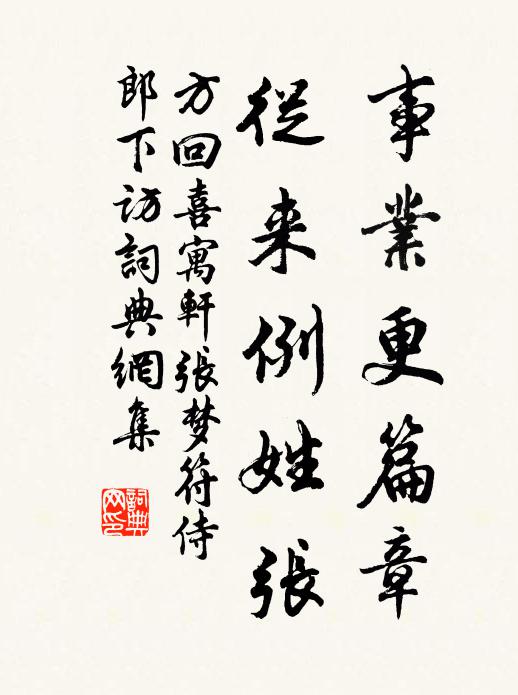 事業更篇章
從来例姓張
方回喜寓軒張梦符侍
郎下访詞典網集
詞典网印